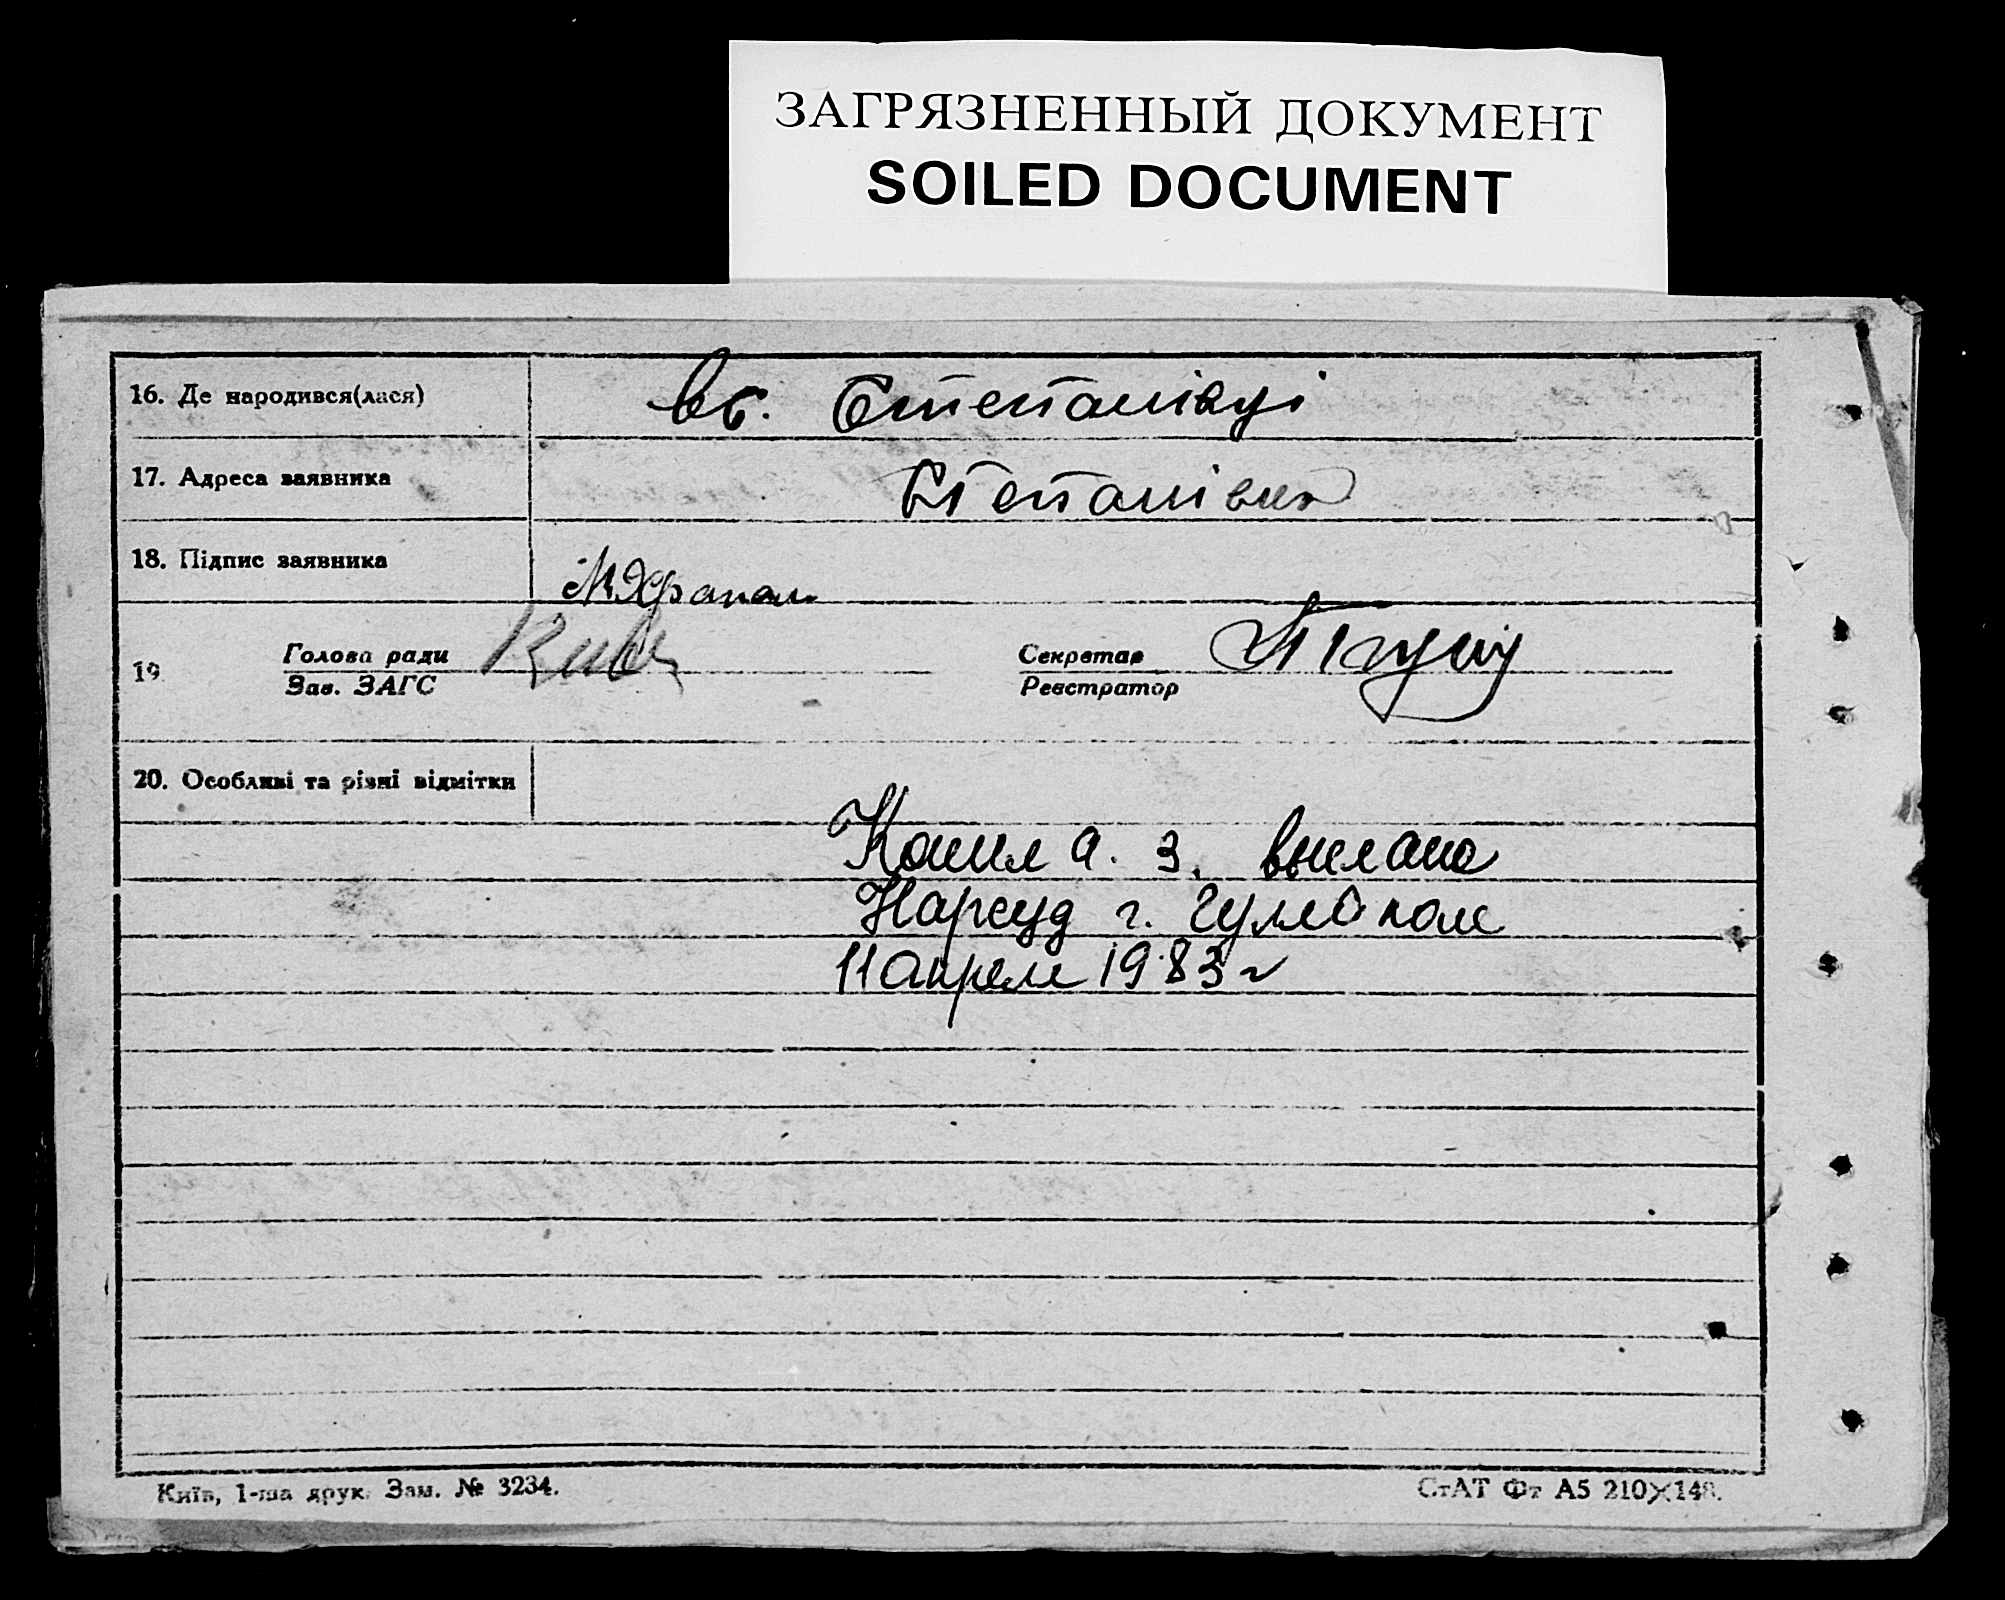 ЗАГРЯЗНЕННЫЙ ДОКУМЕНТ
SOILED DOCUMENT
16. Де народився(лася) в с. Степанівці
17. Адреса заявника Степанівка
18. Підпис заявника
19 Голова ради
Зав. ЗАГС
Секретар
Реєстратор
20. Особливі та різні відмітки
Копия а. з. выслана
Нарсуд г. Гуляйполе
11 апреля 1983 г
Київ, 1-ша друк. Зам. № 3234.
СтАТ Фт А5 210×148.